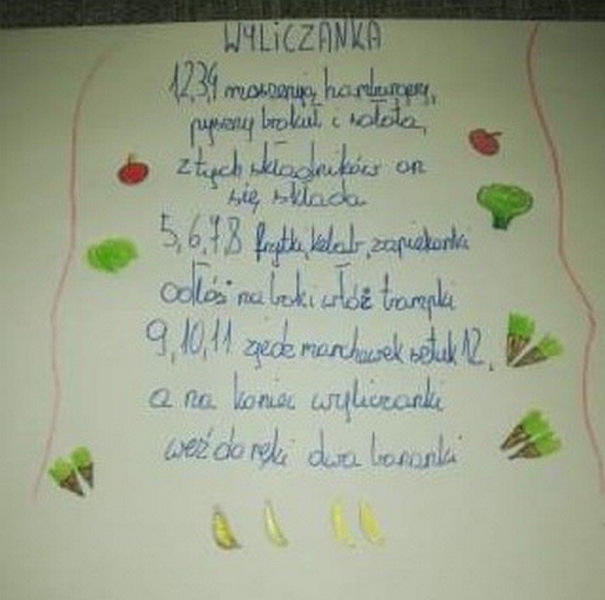 WYLICZANKA
1,2,3,4 maszerują hamburgery,
pyszny brokuł i sałata,
z tych składników on
się składa.
5,6,7,8 frytki, kebab, zapiekanki
odłóż na boki włóż trampki
9,10,11 zjedz marchewek sztuk 12,
a na koniec wyliczanki
weź do ręki dwa bananki